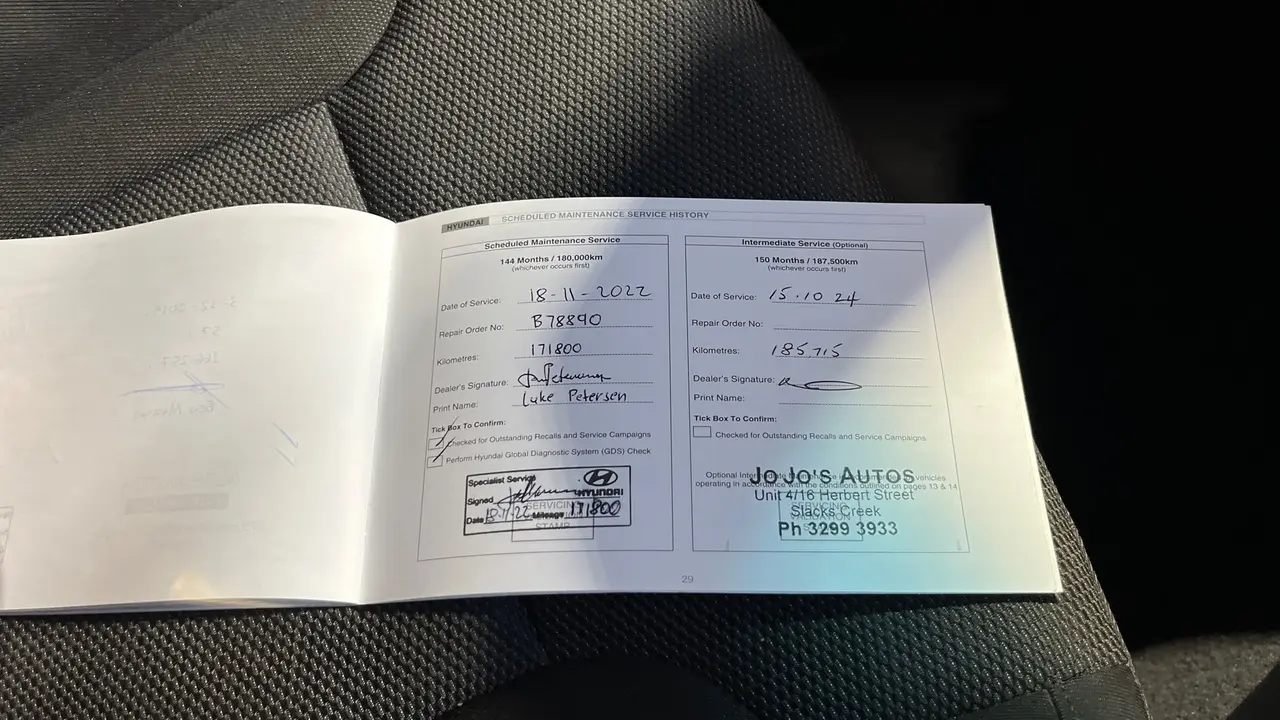 HYUNDAI SCHEDULED MAINTENANCE SERVICE HISTORY
Scheduled Maintenance Service
144 Months / 180,000km
(whichever occurs first)
Date of Service: 18-11-2022
Repair Order No: B78890
Kilometres: 171800
Dealer's Signature:
Print Name: Luke Petersen
Tick Box To Confirm:
Checked for Outstanding Recalls and Service Campaigns
Perform Hyundai Global Diagnostic System (GDS) Check
Specialist Service
HYUNDAI
Signed
Date 18-11-22 Mileage 171800
SERVICING
STAMP
Intermediate Service (Optional)
150 Months / 187,500km
(whichever occurs first)
Date of Service: 15.10 24
Repair Order No:
Kilometres: 185715
Dealer's Signature:
Print Name:
Tick Box To Confirm:
Checked for Outstanding Recalls and Service Campaigns
Optional Intermediate vehicles
operating in accordance with the conditions outlined on pages 13 & 14
JoJo's Autos
Unit 4/16 Herbert Street
Slacks Creek
Ph 3299 3933
SERVICING
29